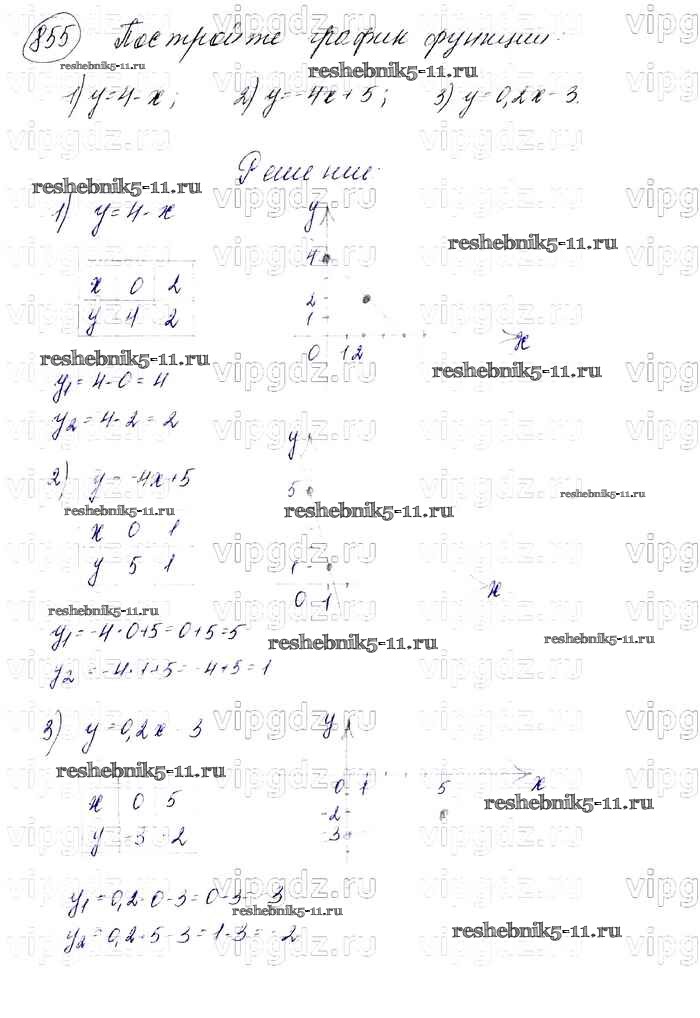 855 Постройте график функции:
1) y=4-x; 2) y=-4x+5; 3) y=0,2x-3.
Решение.
1) y=4-x
x 0 2
y 4 2
y₁=4-0=4
y₂=4-2=2
y
4
2
1
0 1 2 x
2) y=-4x+5
x 0 1
y 5 1
y₁=-4·0+5=0+5=5
y₂=-4·1+5=-4+5=1
y
5
1
0 1 x
3) y=0,2x-3
x 0 5
y -3 -2
y₁=0,2·0-3=0-3=-3
y₂=0,2·5-3=1-3=-2
y
0 1 5 x
-2
-3
reshebnik5-11.ru
vipgdz.ru